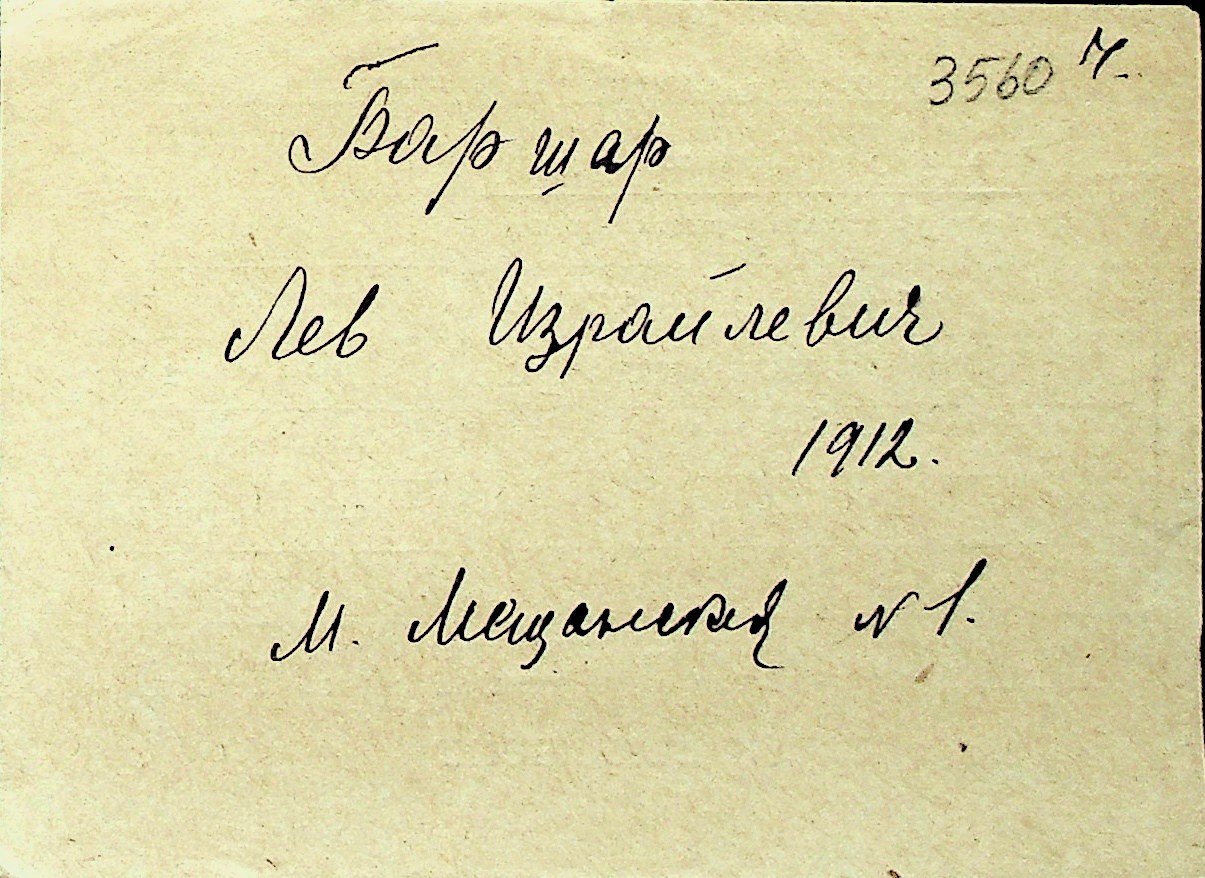 3560 ч.
Баршар
Лев Израйлевич
1912.
М. Мещанская N 1.